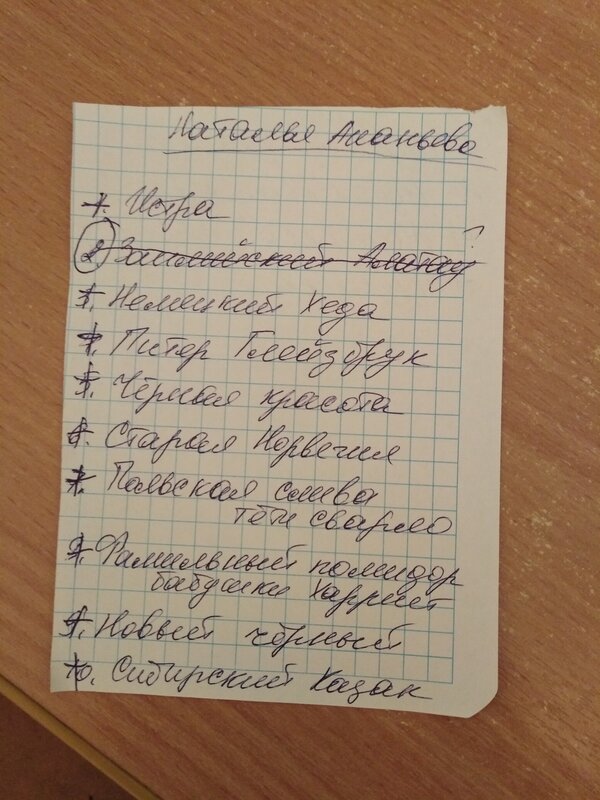 Наталья Ананьева
1. Истра
2. Заилийский Алатау ?
3. Немецкий Хеда
4. Питер Глейзбрук
5. Чёрная красота
6. Старая Норвегия
7. Польская слива
тёти сварло
8. Фамильный помидор
бабушки Харриет
9. Новый чёрный
10. Сибирский Казак